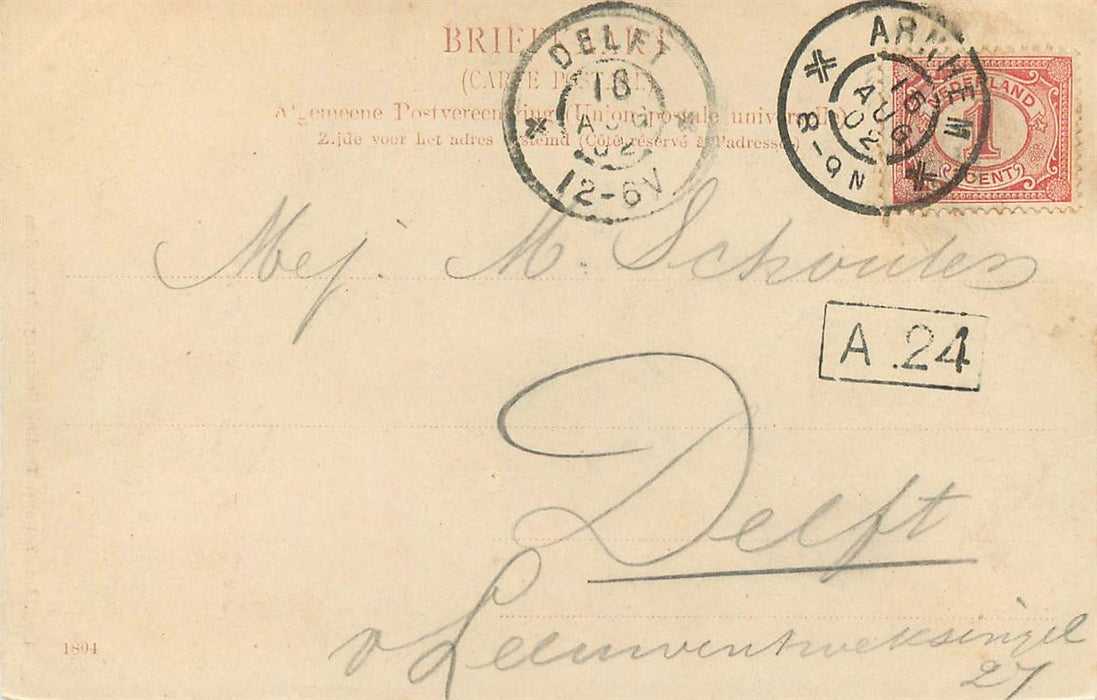 BRIEFKAART
(CARTE POSTALE)
Algemeene Postvereeniging (Union postale universelle)
Zijde voor het adres bestemd (Côté réservé à l'adresse)
DELFT
16
AUG
02
12-6V
ARNHEM
15
AUG
02
8-9N
NEDERLAND
1
CENT
Mej. M. Schouten
A .24
Delft
v Leeuwenhoeksingel
27
1804